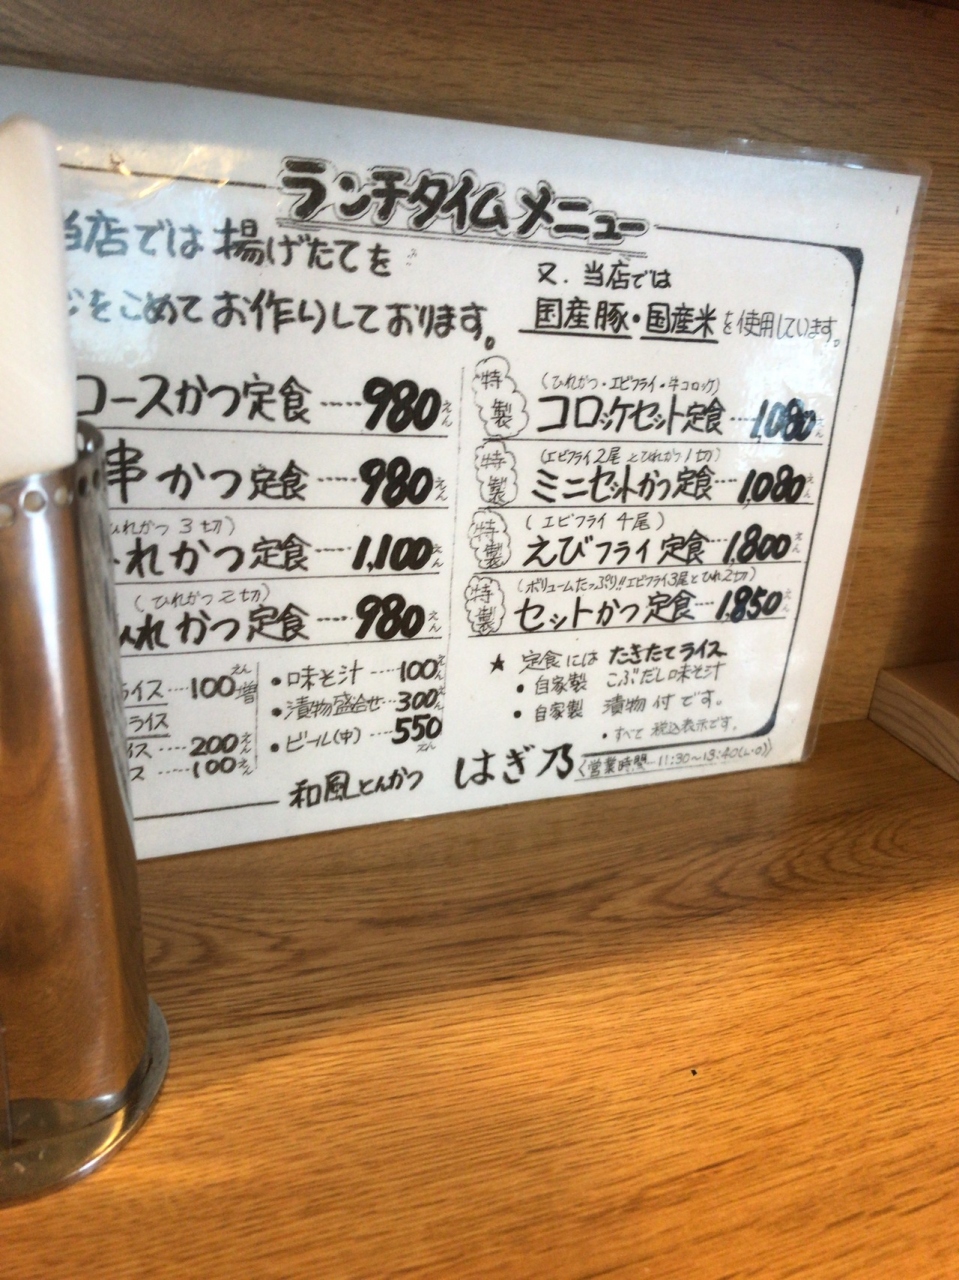 ランチタイムメニュー
当店では揚げたてを
をこめてお作りしております。
又、当店では
国産豚・国産米を使用しています。
ロースかつ定食----980えん
串かつ定食----980えん
ひれかつ 3切)
れかつ定食----1,100えん
(ひれかつ2切)
れかつ定食----980えん
特製
(ひれかつ・エビフライ・牛コロッケ)
コロッケセット定食---1,080えん
特製
(エビフライ2尾とひれかつ1切)
ミニセットかつ定食---1,080えん
特製
(エビフライ 4尾)
えびフライ定食---1,800えん
特製
(ボリュームたっぷり!!エビフライ3尾とひれ2切)
セットかつ定食---1,850えん
ライス---100えん増
ライス
イス----200えん
ス----100えん
・味そ汁----100えん
・漬物盛合せ---300えん
・ビール(中)----550えん
★ 定食には たきたてライス
・自家製 こぶだし味そ汁
・自家製 漬物 付です。
・すべて 税込表示です。
和風とんかつ はぎ乃
〈営業時間---11:30~13:40(L・O)〉